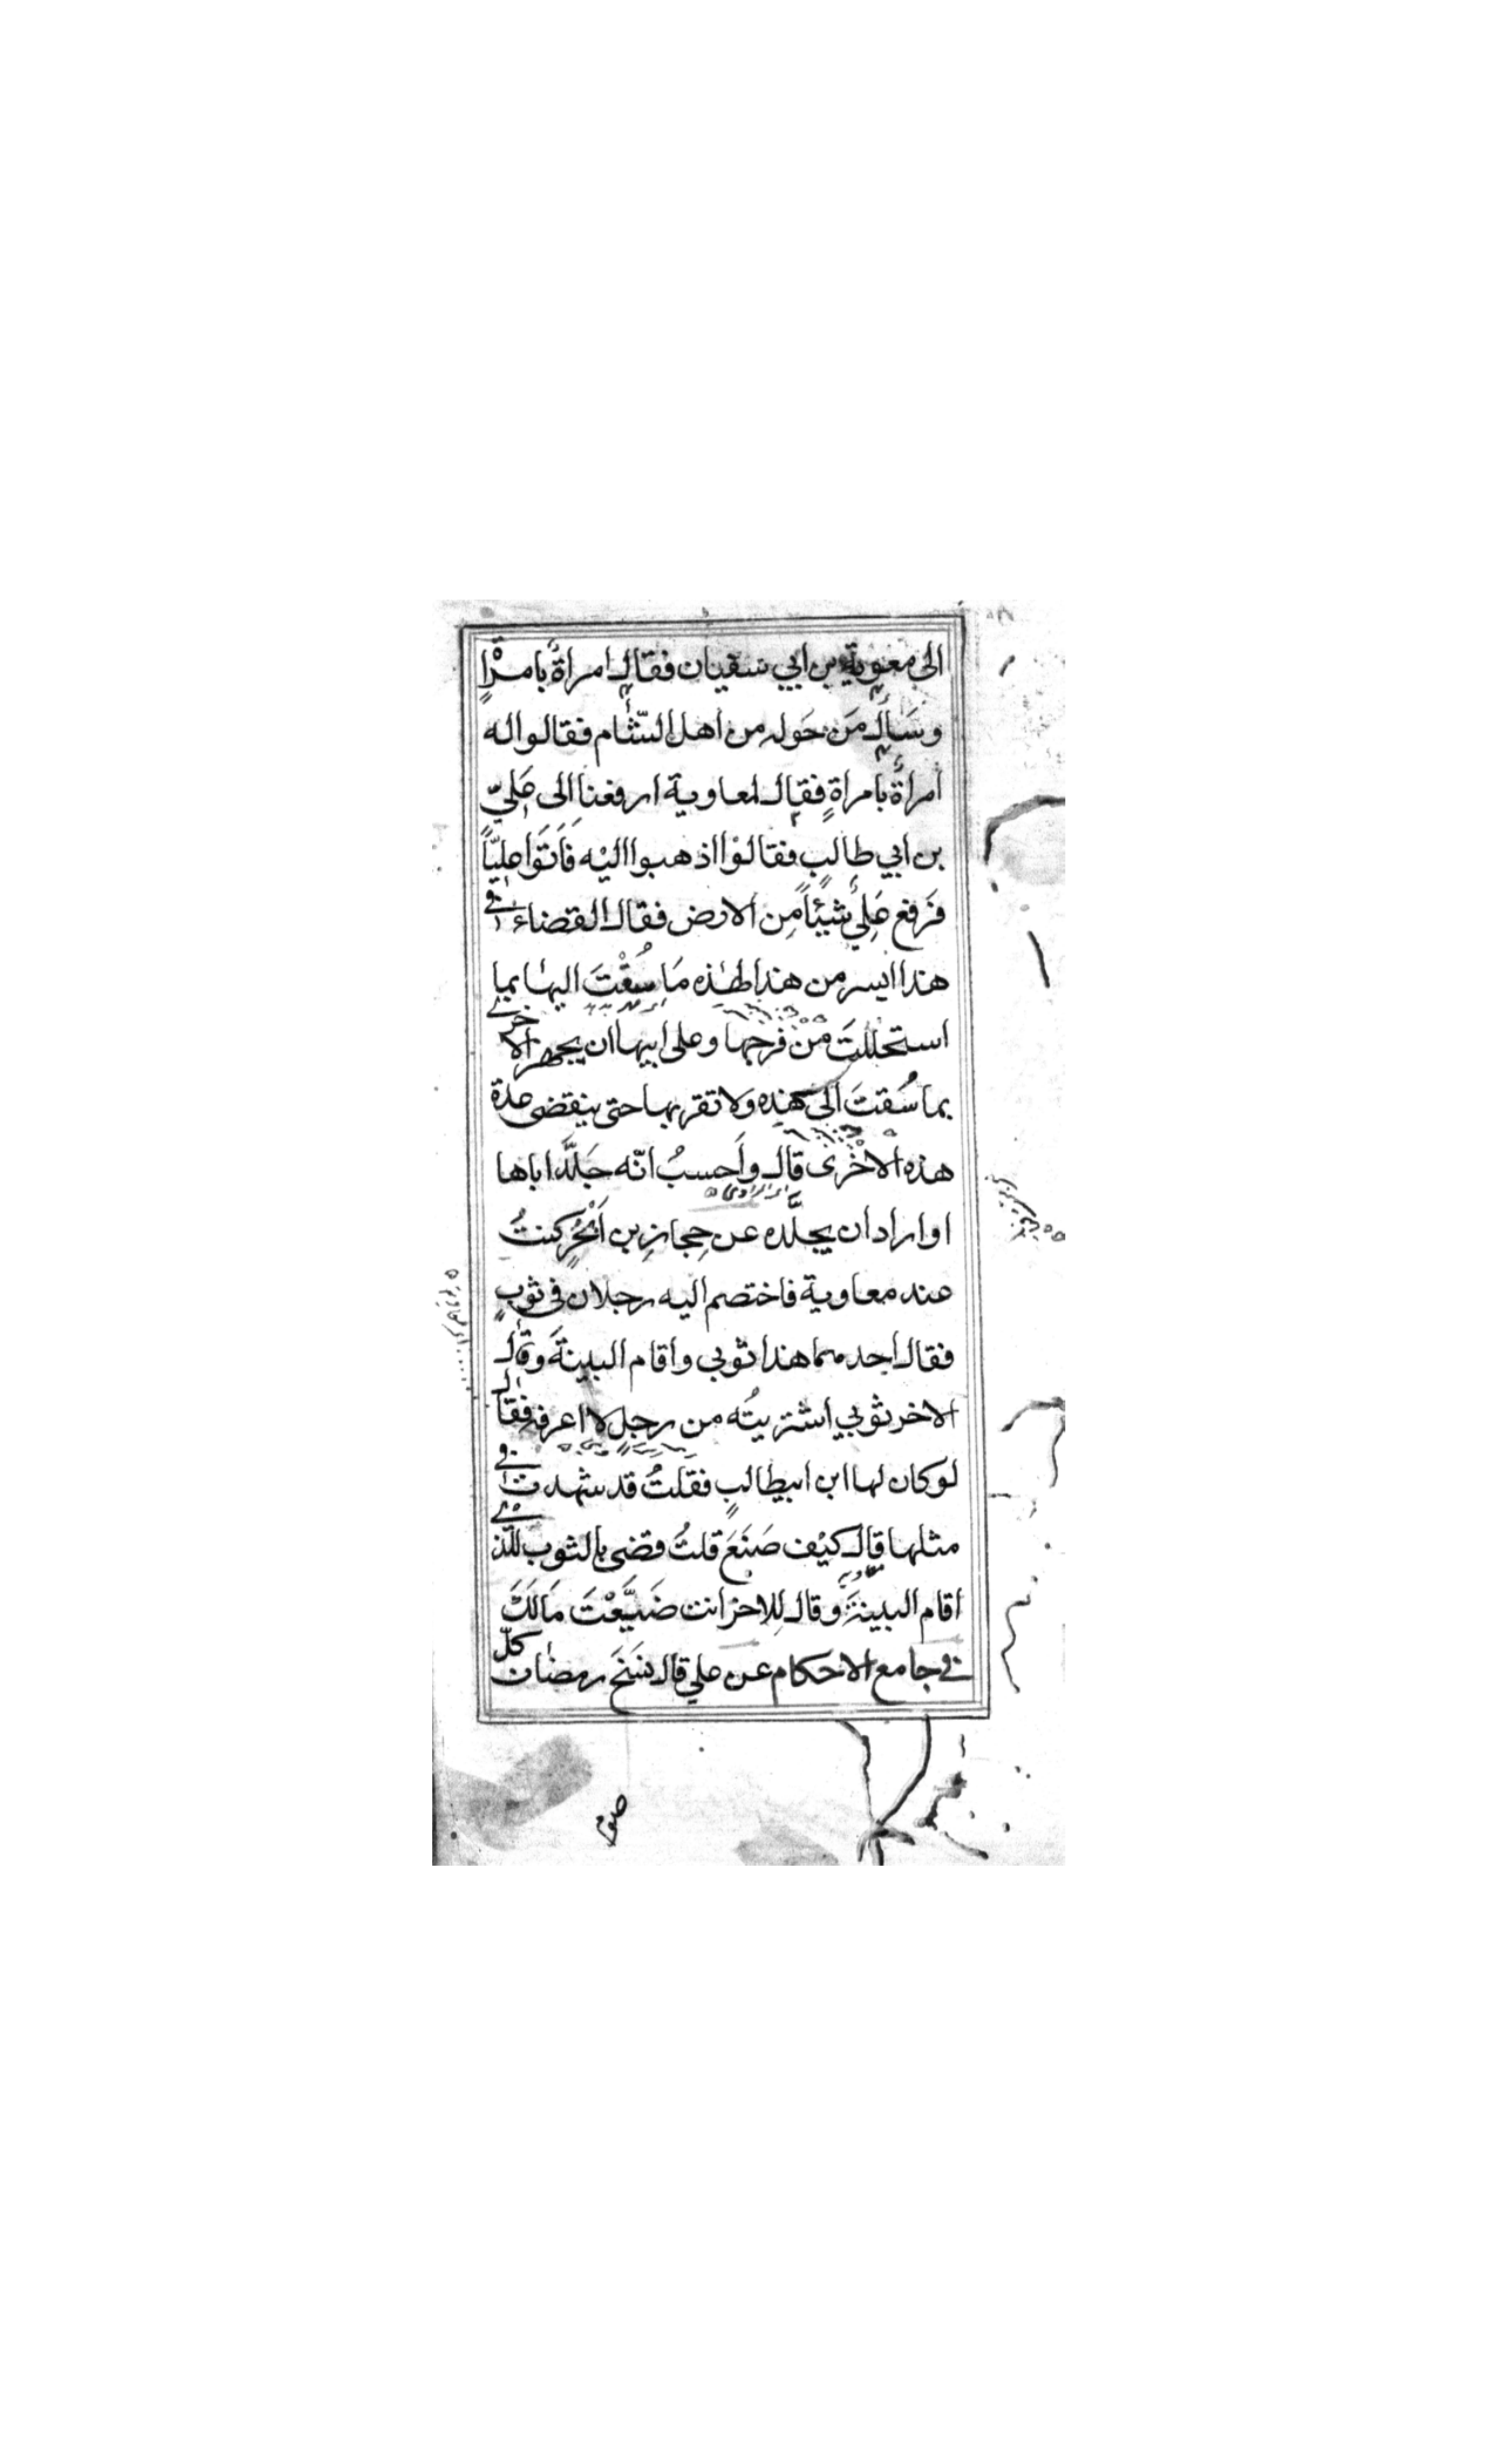 الى معوية بن ابي سفيان فقال امراةٌ بامراةٍ
وسَاَلَ مَن حَوله من اهل الشّام فقالوا له
امراةٌ بامراةٍ فقال لمعاوية ارفعنا الى عَليّ
بن ابي طالبٍ فقالوْا اذهبوا اليْه فَاَتَوا عليّاً
فَرَفع عَلِيٌ شيئاً مِن الارض فقال القضاء في
هذا ايسر من هذا لهٰذه مَا سُقْتَ اليها بما
استحللتَ مْنْ فَرْجها وعلى ابيها ان يجهز الاخرى
بما سُقتَ الى هٰذِه ولا تقربها حتى ينقضى عدة
هذه الاخْرى قال واَحسبُ انّه جَلَّدَ اباها
او اراد ان يجلّده عن حِجازِ بن اَبْجُرٍ كنتُ
عند معاوية فاختصم اليه رجلان في ثوبٍ
فقال احدهما هذا ثوبي واقام البينةَ وقال
الاخر ثوبي اشتريتُه من رجلٍ لا اعرفه فقال
لو كان لها ابن ابيطالبٍ فقلتُ قد شهدت في
مثلها قال كيْف صَنَعَ قلتُ قضى بالثوب للّذي
اقام البينةَ وقال لِلاخر انت ضَيَّعْتَ مَالَكَ
في جامع الاحكام عن علي قال نَسَخَ رمضان كلّ
صوم